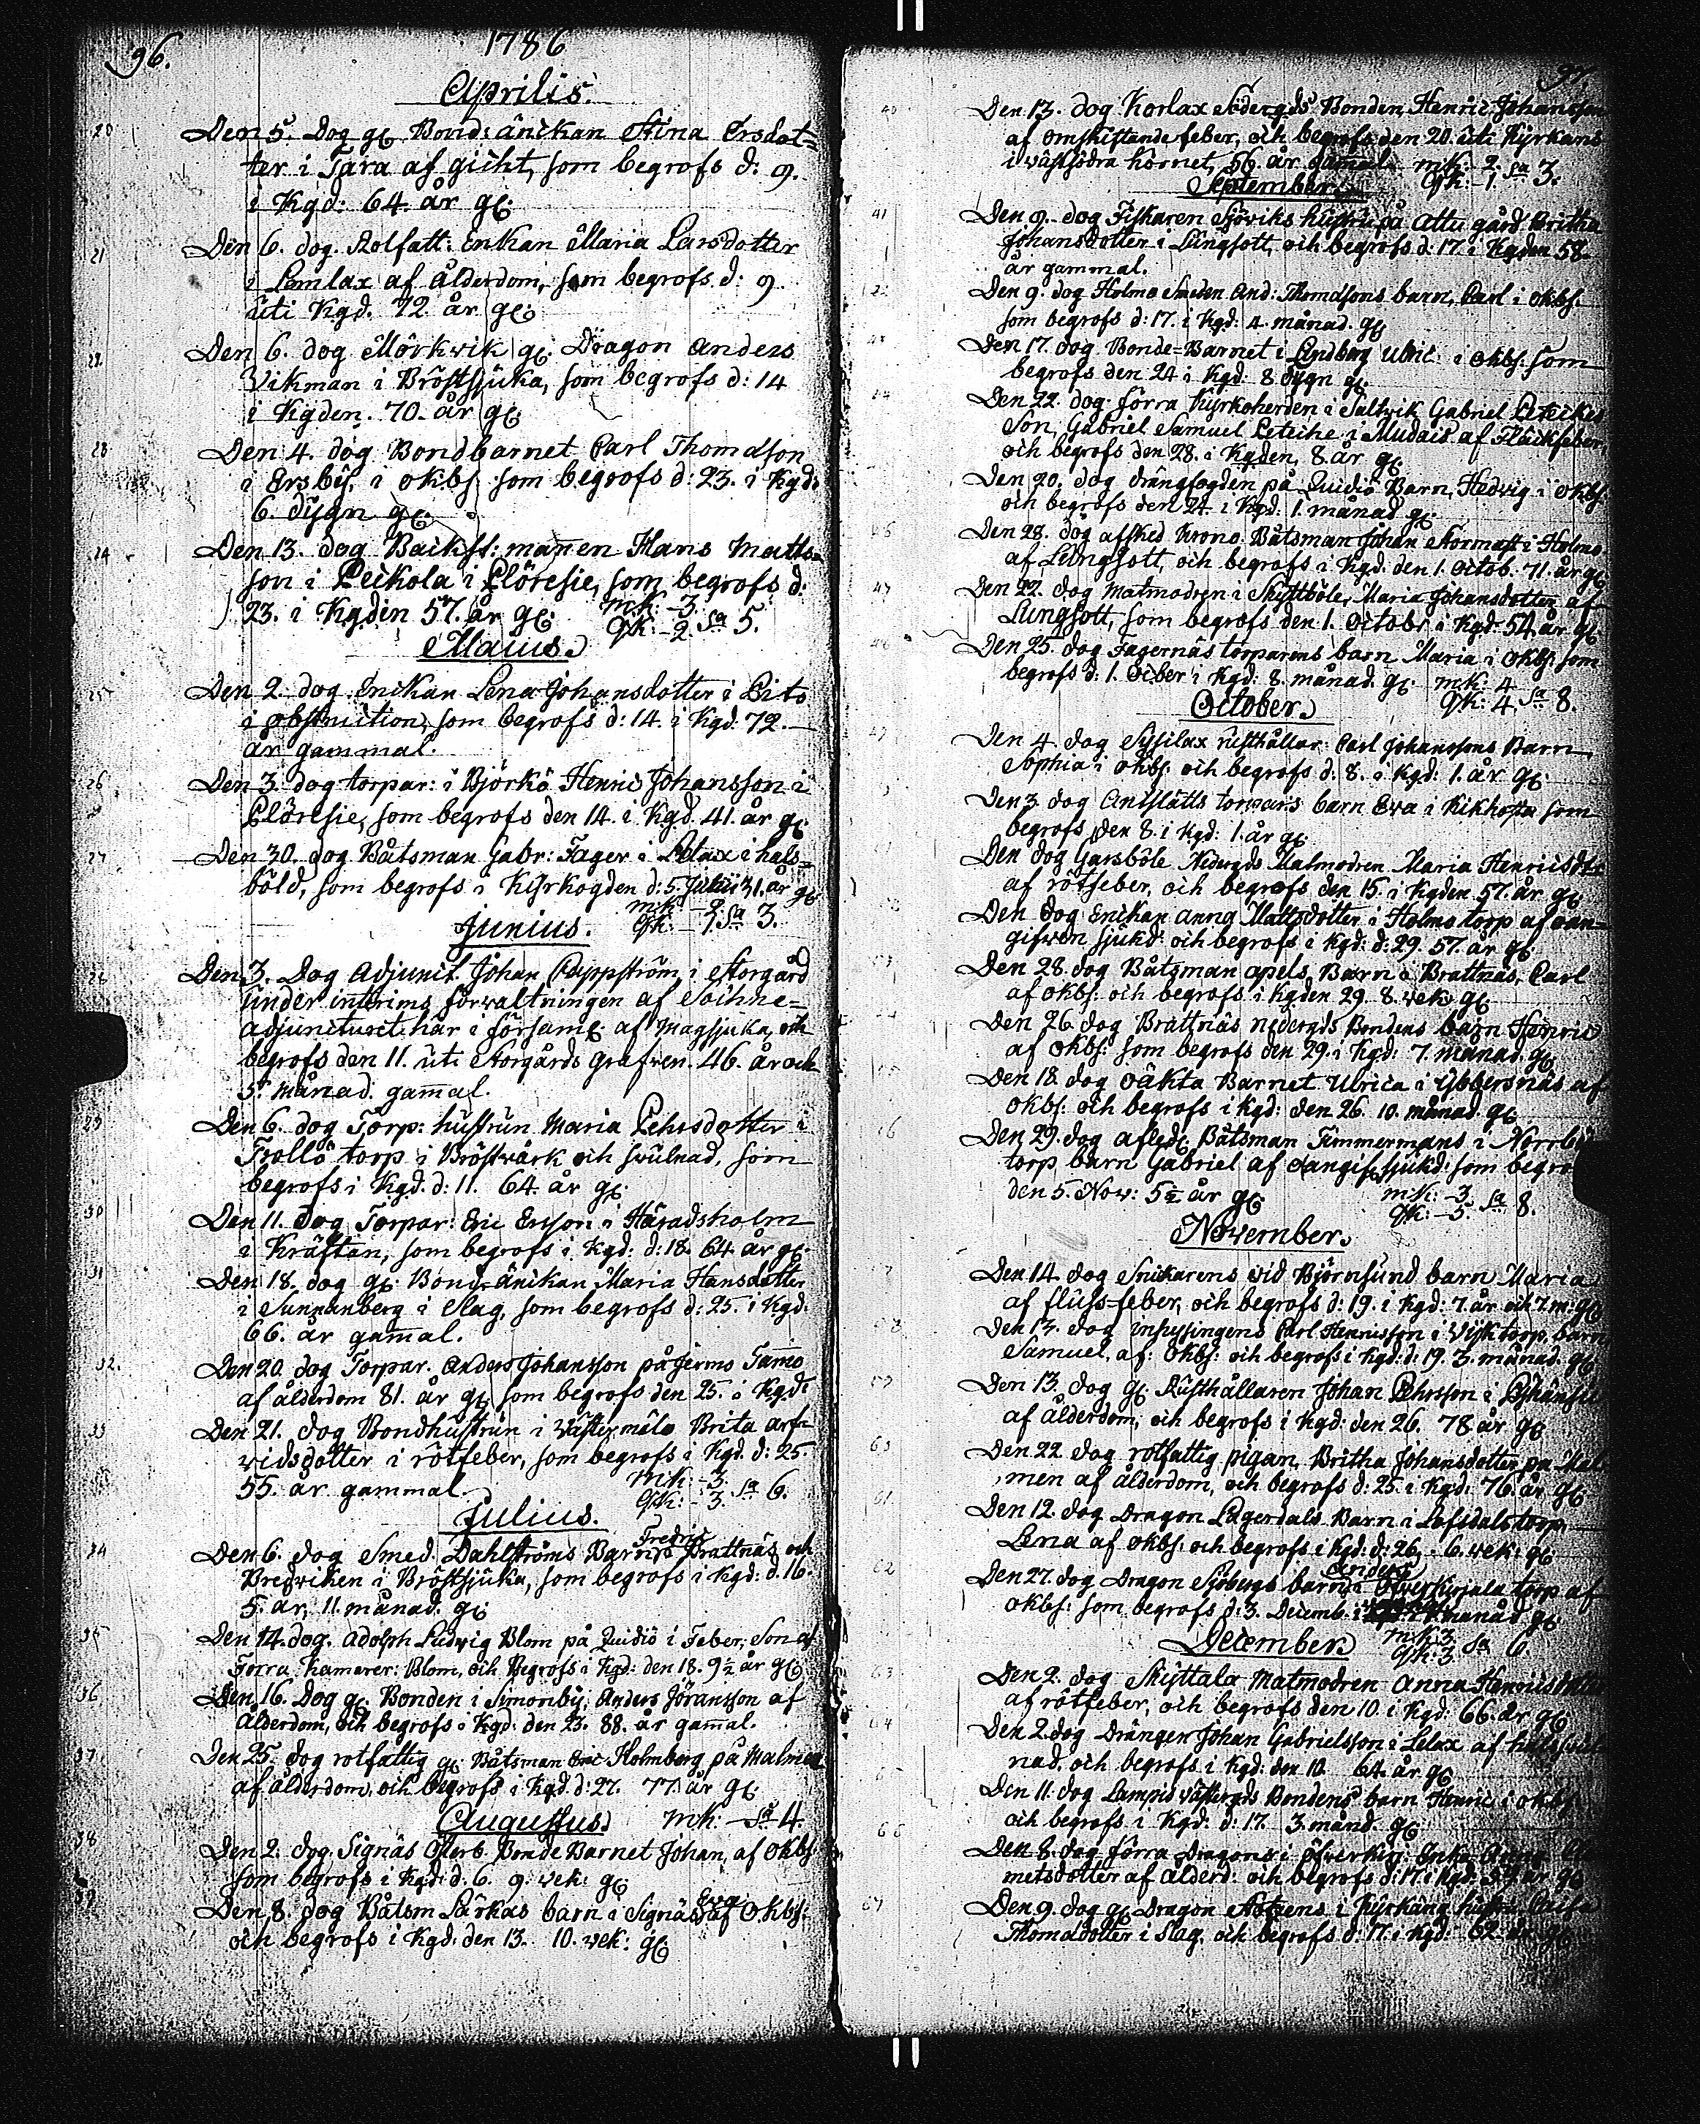 96.
1786
Aprilis.
20 Den 5. dog gl. Bond: änckan Stina Ersdot=
ter i Tara af gicht, som begrofs d: 9.
i Kgd: 64 år gl.
21 Den 6. dog Enkan Maria Larsdotter
i Lemlax af ålderdom, som begrofs d: 9
uti Kgd. 72 år gl.
22 Den 6. dog Mörkvik gl. Dragon Anders
Vikman i Bröstsjuka, som begrofs d: 14
i Kgden. 70. år gl.
23 Den 4. dog Bondbarnet Carl Thomdson
i Ersby, i okbs. som begrofs d: 23. i Kgd:
6. dygn gl.
24 Den 13. dog Backst: mannen Hans Matts=
son i Peckola i Plöresie, som begrofs d:
23. i Kgden 57. år gl. mk: - 3.
qk: - 2. Sa 5.
Maius.
25 Den 2. dog Enckan Lena Johansdotter i
i obstruction, som begrofs d: 14. i Kgd. 72.
år gammal.
26 Den 3. dog torpar: i Björkö Henric Johansson i
Plöresie, som begrofs den 14. i Kgd. 41. år gl.
27 Den 30. dog Båtsman Gabr: Fager i Lelax i hals=
böld, som begrofs i Kyrkogden d: 5. Junii 31. år gl.
mk: - 2.
qk: - 1. Sa 3.
Junius.
28 Den 3. dog Adjunct. Johan Pappström i Storgård
under interims förwaltningen af Sockne=
adjuncturet här i församl: af Magsjuka, och
begrofs den 11. uti Storgårds grafwen. 46. år och
5. månad. gammal.
29 Den 6. dog Torp: hustrun Maria Pehrsdotter i
Trollö torp i Bröstwärk och swulnad, som
begrofs i Kgd. d: 11. 64. år gl.
30 Den 11. dog Torpar: Eric Ersson i Häradsholm
i Kräftan, som begrofs i Kgd: d: 18. 64 år gl.
31 Den 18. dog gl. Bond-änckan Maria Hansdotter
i Sunnanberg i Slag, som begrofs d: 25. i Kgd.
66. år gammal.
32. Den 20. dog Torpar. Anders Johansson på Jermo
af ålderdom 81. år gl. som begrofs den 25. i Kgd:
33 Den 21. dog Bondhustrun i Brita Arf=
widsdotter i rötfeber, som begrofs i Kgd. d: 25.
55. år gammal. mk: - 3.
qk: - 3. Sa 6.
Julius.
34 Den 6. dog Smed Dahlströms Barn Fredric i Brattnäs och
Bredviken i Bröstsjuka, som begrofs i Kgd: d: 16.
5. år, 11. månad. gl.
35 Den 14. dog. Adolph Ludwig Blom på Quidiö i Feber, Son af
Förra Kamerer: Blom, och Begrofs i Kgd: den 18. 9½ år gl.
36 Den 16. Dog gl. Bonden i Simonby, Anders Jöransson af
ålderdom, och begrofs i Kgd: den 23. 88. år gammal.
37 Den 25. dog rotfattig gl. Båtsman Eric Holmberg på Malmen
af ålderdom, och begrofs i Kgd. d: 27. 77 år gl.
Augustus. mk: - Sa 4.
38 Den 2. dog. Signäs Österb Bonde Barnet Johan, af okbs:
som begrofs i Kgd: d. 6. 9. wek: gl.
39 Den 8. dog Båtsm Lärkas barn i Signäs Ewa af okbs:
och begrofs i Kgd: den 13. 10. wek: gl.
97.
40 Den 13. dog Korlax Södergds Bonden Henric Johansson
af omskiftande feber, och begrofs den 20. uti Kyrkans
i wästsödra hörnet, 56. år gammal. mk: 2.
qk: - 1. Sa 3.
September.
41 Den 9. dog Fiskaren Sjöviks hustru på Attu gård Britha
Johansdotter i Lungsott, och begrofs d: 17. i Kgden 58.
år gammal.
Den 9. dog Holmo Smeden And: Thomdsons barn, Carl i okbs.
som begrofs d: 17. i Kgd: 4. månad. gl.
Den 17. dog Bonde=Barnet i Lindberg Ulric i okbs. som
begrofs den 24 i Kgd: 8 dygn gl.
Den 22. dog förra Kyrkoherden i Saltvik Gabriel
Son, Gabriel Samuel i Mudais af Fläckfeber,
och begrofs den 28. i Kgden, 8 år gl.
Den 20. dog drängfogden på Quidiö Barn, Hedvig i okbs.
och begrofs den 24 i Kgd. 1. månad gl.
46 Den 28. dog afsked Krono Båtsman Johan Stormast i Holmo
af Lungsott, och begrofs i Kgd. den 1. Octob. 71. år gl
47 Den 22. dog Matmodren i Skyttböle, Maria Johansdotter af
Lungsott, som begrofs den 1. Octobr i Kgd: 54 år gl
Den 25. dog Fagernäs torparens barn Maria i okbs. som
begrofs d: 1. Octber i Kgd: 8. månad. gl. mk: 4
qk: 4. Sa 8.
October.
Den 4 dog Sysilax rusthållar: Carl Johanssons Barn
Sophia i okbs. och begrofs d: 8. i Kgd: 1. år gl.
Den 3. dog torpars barn Eva i Kikhosta som
begrofs den 8. i Kgd: 1. år gl.
Den dog Garsböle Nedergds Matmodren Maria Henricsdtr
af rötfeber, och begrofs den 15. i Kgden 57. år gl.
Den dog Enckan Anna Mattsdotter i Holmo torp af oan=
gifwen sjukd: och begrofs i Kgd: d: 29. 57. år gl.
Den 28. dog Båtsman Apels Barn i Brattnäs, Carl
af okbs: och begrofs i Kgden 29. 8. wek gl.
Den 26 dog Brattnäs nedergds Bondens barn Henric
af okbs: som begrofs den 29. i Kgd: 7. månad. gl.
Den 18. dog oäkta Barnet Ulrica i Ybbersnäs af
okbs: och begrofs i Kgd: den 26. 10. månad. gl.
Den 29. dog Båtsman Timmermans i Norrby
torp barn Gabriel af oangif. sjukd: som begro
den 5. Now: 5½ år gl. mk: - 3.
qk: - 5. Sa 8.
November.
Den 14. dog Snickarens wid Björnsund barn Maria
af fluss-feber, och begrofs d: 19. i Kgd: 7. år och 7. m: gl
Den 13. dog inhysingens Carl Henricsson i torp barn
Samuel, af: okbs: och begrofs i Kgd: d: 19. 3. månad. gl.
Den 13. dog gl. Rusthållaren Johan Pehrsson i
af ålderdom, och begrofs i Kgd: den 26. 78 år gl
Den 22 dog rotfattig pigan Britha Johansdotter på Mal
men af ålderdom, och begrofs d: 25. i Kgd: 76. år gl
61. Den 12. dog Dragon Lägerdals Barn i Lofsdals torp
Lena af okbs. och begrofs i Kgd. d: 26. 6. wek: gl.
62 Den 27. dog Dragon Sjöbergs barn Anders i torp af
okbs: som begrofs d: 3. Decemb. i månad gl.
December. mk 3
qk: 3 Sa 6.
63 Den 2. dog Skyttala Matmodren Anna Henricsdotter
af rötfeber, och begrofs den 10. i Kgd: 66. år gl
64 Den 2. dog Drängen Johan Gabrielsson i Lelax af
nad, och begrofs i Kgd: den 10. 64 år gl
Den 11. dog Lampis Wästergds Bondens barn Henric i okbs
och begrofs i Kgd. d: 17. 3. månd. gl.
66 Den 8. dog förra Dragons i
metsdotter af ålderd. och begrofs d: 17. i Kgd. år gl
67 Den 9. dog gl. Dragon i Kyrkäng hustru
Thomadotter i slag. och begrofs d: 17. i Kgd: 62. år gl.